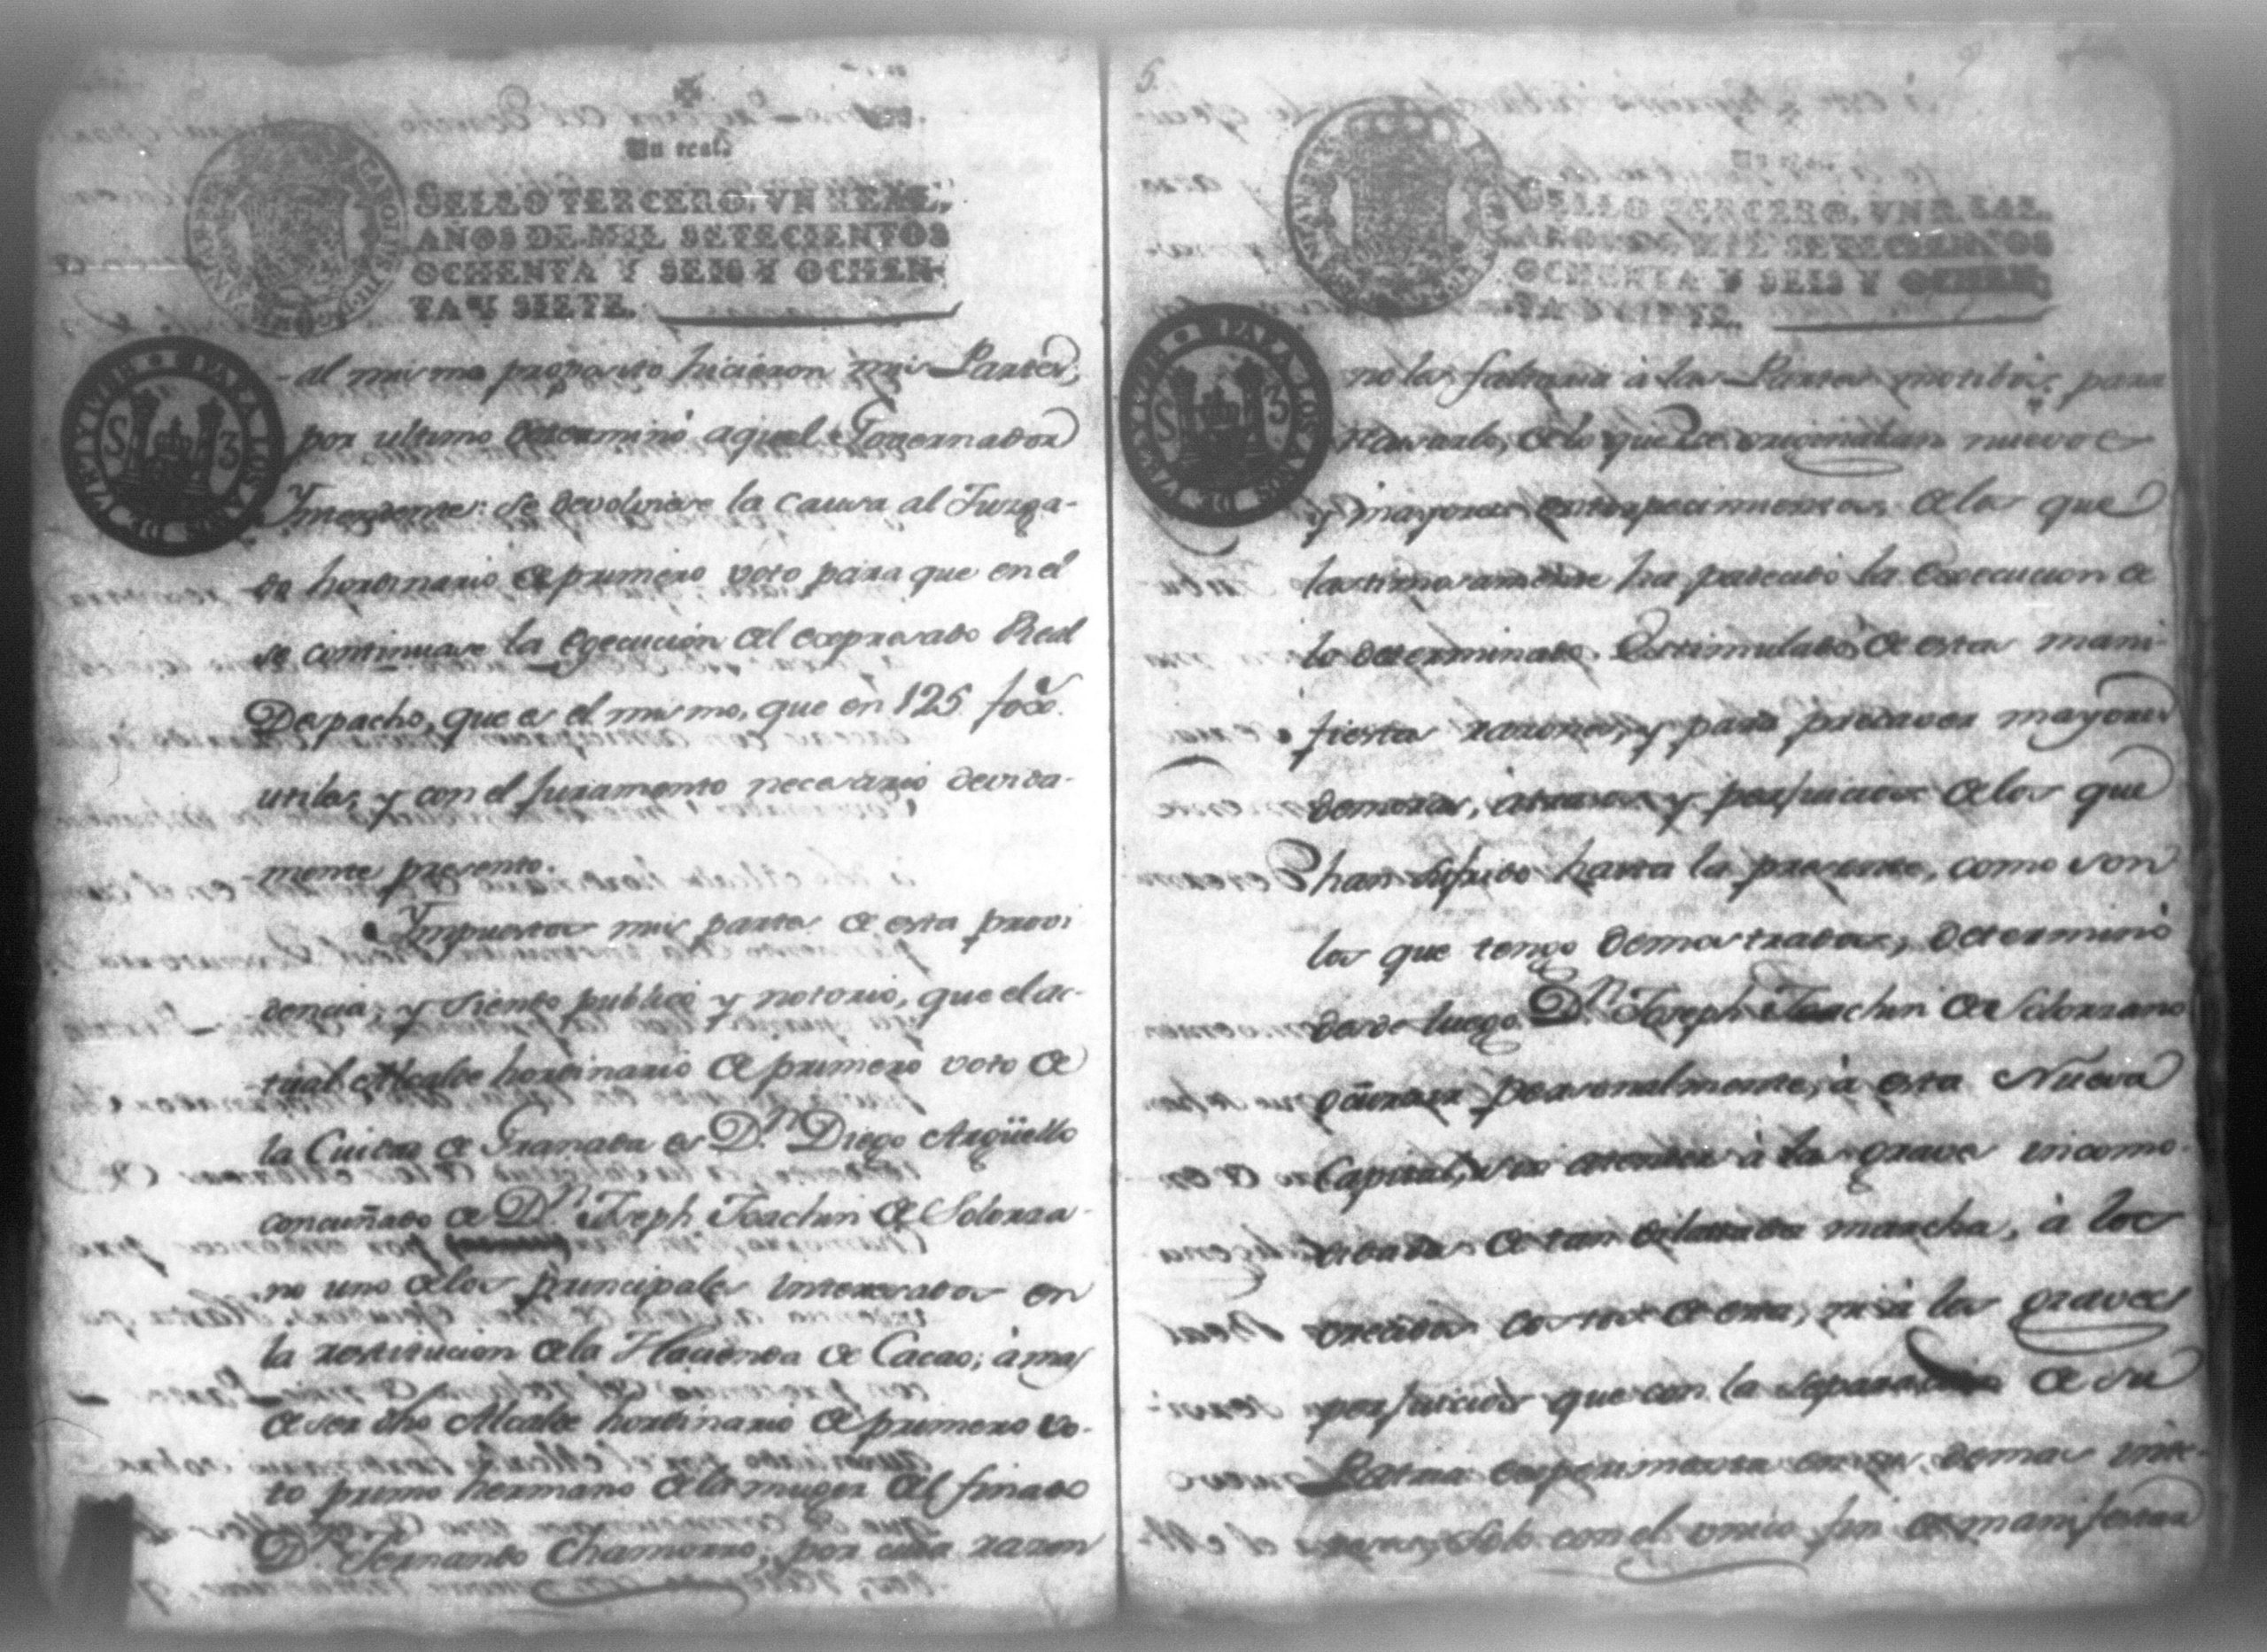 Un real
SELLO TERCERO, VN REAL,
AÑOS DE MIL SETECIENTOS
OCHENTA Y SEIS Y OCHEN-
TA Y SIETE.
PARA LOS AÑOS DE
S 3
al mismo proposito hicieron mis Partes,
por ultimo determinó aquel Governador
Yntendente: se devolviese la causa al Juzga-
do hordinario de primero voto para que en el
se continuase la egecución del expresado Real
Despacho, que es el mismo, que en 125 fox.
utiles, y con el juramento necesario devida-
mente presento.
Ympuestas mis partes de esta provi
dencia; y siento publico y notorio, que el ac-
tual Alcalde hordinario de primero voto de
la Ciudad de Granada es Dn. Diego Argüello
concuñado de Dn. Joseph Joachin de Solorza-
no uno de los principales interesados en
la restitucion de la Hacienda de Cacao; à mas
de ser dho Alcalde hordinario de primero vo-
to primo hermano de la muger del finado
Dn. Fernando Chamorro; por cuia razon
5.
SELLO TERCERO, VN REAL,
AÑOS DE MIL SETECIENTOS
OCHENTA Y SEIS Y OCHEN-
TA Y SIETE.
PARA LOS AÑOS DE
S 3
no les faltaria à las Partes motibos para
de lo que se originaban nuevos
y mayores entorpecimientos, de los que
lastimosamente ha padecido la execucion de
lo determinado. Estimulado de estas mani-
fiestas razones, y para precaver mayores
demoras, atrasos y perjuicios de los que
han sufrido hasta la presente, como son
los que tengo demostrados, determinó
desde luego Dn. Joseph Joachin de Solorzano
personalmente, à esta Nueva
Capital, sin atender à la grave incomo-
didad de tan dilatada marcha, à los
crecidos costos de ella, ni à los graves
perjuicios que con la separacion de su
Patria experimenta en sus demas inte-
reses; solo con el unico fin de manifestar